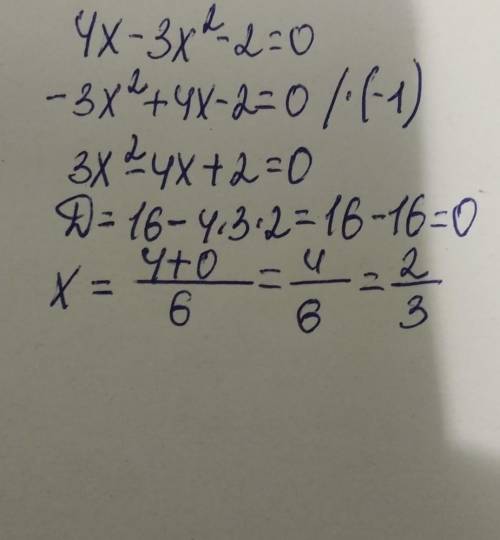 4x - 3x² - 2 = 0
-3x² + 4x - 2 = 0 / · (-1)
3x² - 4x + 2 = 0
Д = 16 - 4 · 3 · 2 = 16 - 16 = 0
x = (4+0)/6 = 4/6 = 2/3